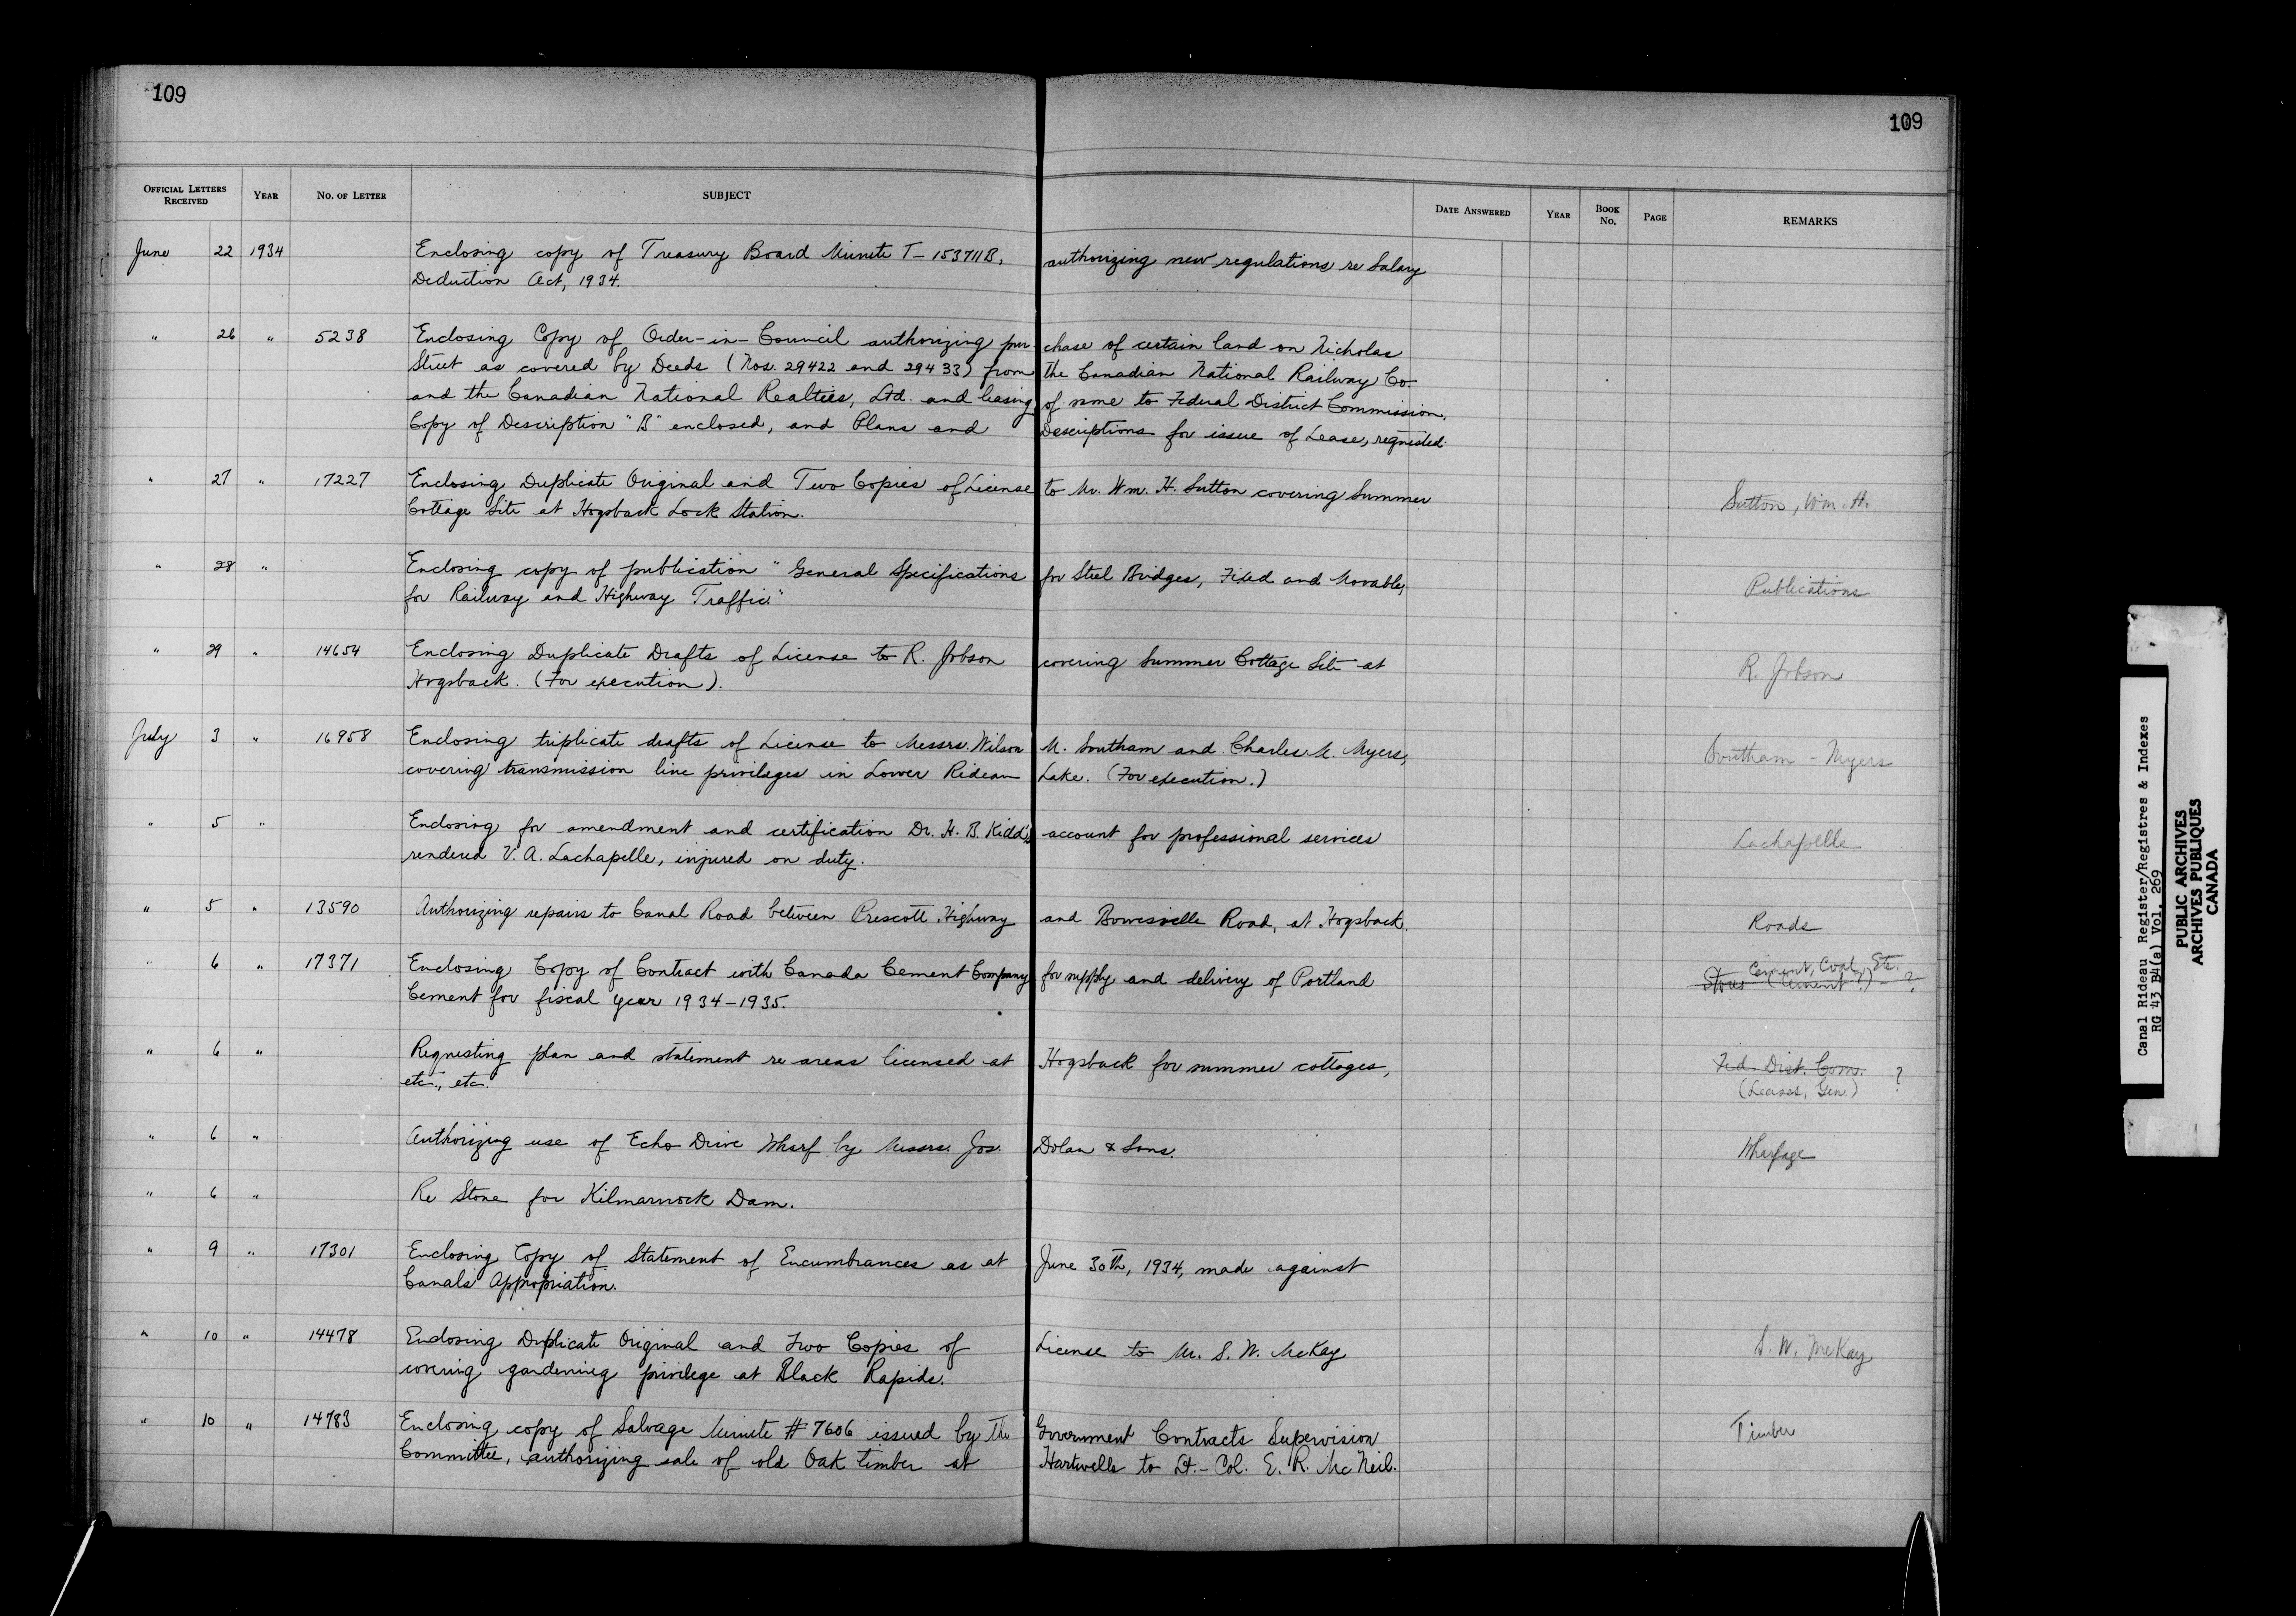 109
109
OFFICIAL LETTERS RECEIVED YEAR NO. OF LETTER SUBJECT DATE ANSWERED YEAR BOOK NO. PAGE REMARKS
June 22 1934 Enclosing copy of Treasury Board Minute T-153711B, authorizing new regulations re Salary
Deduction Act, 1934.
" 26 " 5238 Enclosing Copy of Order-in-Council authorizing purchase of certain land on Nicholas
Street as covered by Deeds (Nos. 29422 and 29433) from the Canadian National Railway Co.
and the Canadian National Realties, Ltd. and leasing of same to Federal District Commission.
Copy of Description "B" enclosed, and Plans and Descriptions for issue of Lease, requested.
" 27 " 17227 Enclosing Duplicate Original and Two Copies of License to Mr. Wm. H. Sutton covering Summer Sutton, Wm. H.
Cottage Site at Hogsback Lock Station.
" 28 " Enclosing copy of publication "General Specifications for Steel Bridges, Fixed and Movable, Publications
for Railway and Highway Traffic."
" 29 " 14654 Enclosing Duplicate Drafts of License to R. Jobson covering Summer Cottage Site at R. Jobson
Hogsback. (For execution).
July 3 " 16958 Enclosing triplicate drafts of License to Messrs. Wilson M. Southam and Charles M. Myers, Southam - Myers
covering transmission line privileges in Lower Rideau Lake. (For execution.)
" 5 " Enclosing for amendment and certification Dr. H. B. Kidd's account for professional services Lachapelle
rendered V. A. Lachapelle, injured on duty.
" 5 " 13590 Authorizing repairs to Canal Road between Prescott Highway and Bowesville Road, at Hogsback. Roads
" 6 " 17371 Enclosing Copy of Contract with Canada Cement Company for supply and delivery of Portland Cement, Coal, Etc.
Stores (Cement?) - ?
Cement for fiscal year 1934-1935.
" 6 " Requesting plan and statement re areas licensed at Hogsback for summer cottages, Fed. Dist. Com. ?
etc., etc. (Leases, Gen.)
" 6 " Authorizing use of Echo Drive Wharf by Messrs. Jos. Dolan & Sons. Wharfage
" 6 " Re Stone for Kilmarnock Dam.
" 9 " 17301 Enclosing Copy of Statement of Encumbrances as at June 30th, 1934, made against
Canals Appropriation.
" 10 " 14478 Enclosing Duplicate Original and Two Copies of License to Mr. S. W. McKay S. W. McKay
covering gardening privilege at Black Rapids.
" 10 " 14783 Enclosing copy of Salvage Minute #7606 issued by the Government Contracts Supervision Timber
Committee, authorizing sale of old Oak timber at Hartwells to Lt.-Col. E. R. McNeil.
Canal Rideau Register/Registres & Indexes
RG 43 B4(a) Vol. 269
PUBLIC ARCHIVES
ARCHIVES PUBLIQUES
CANADA